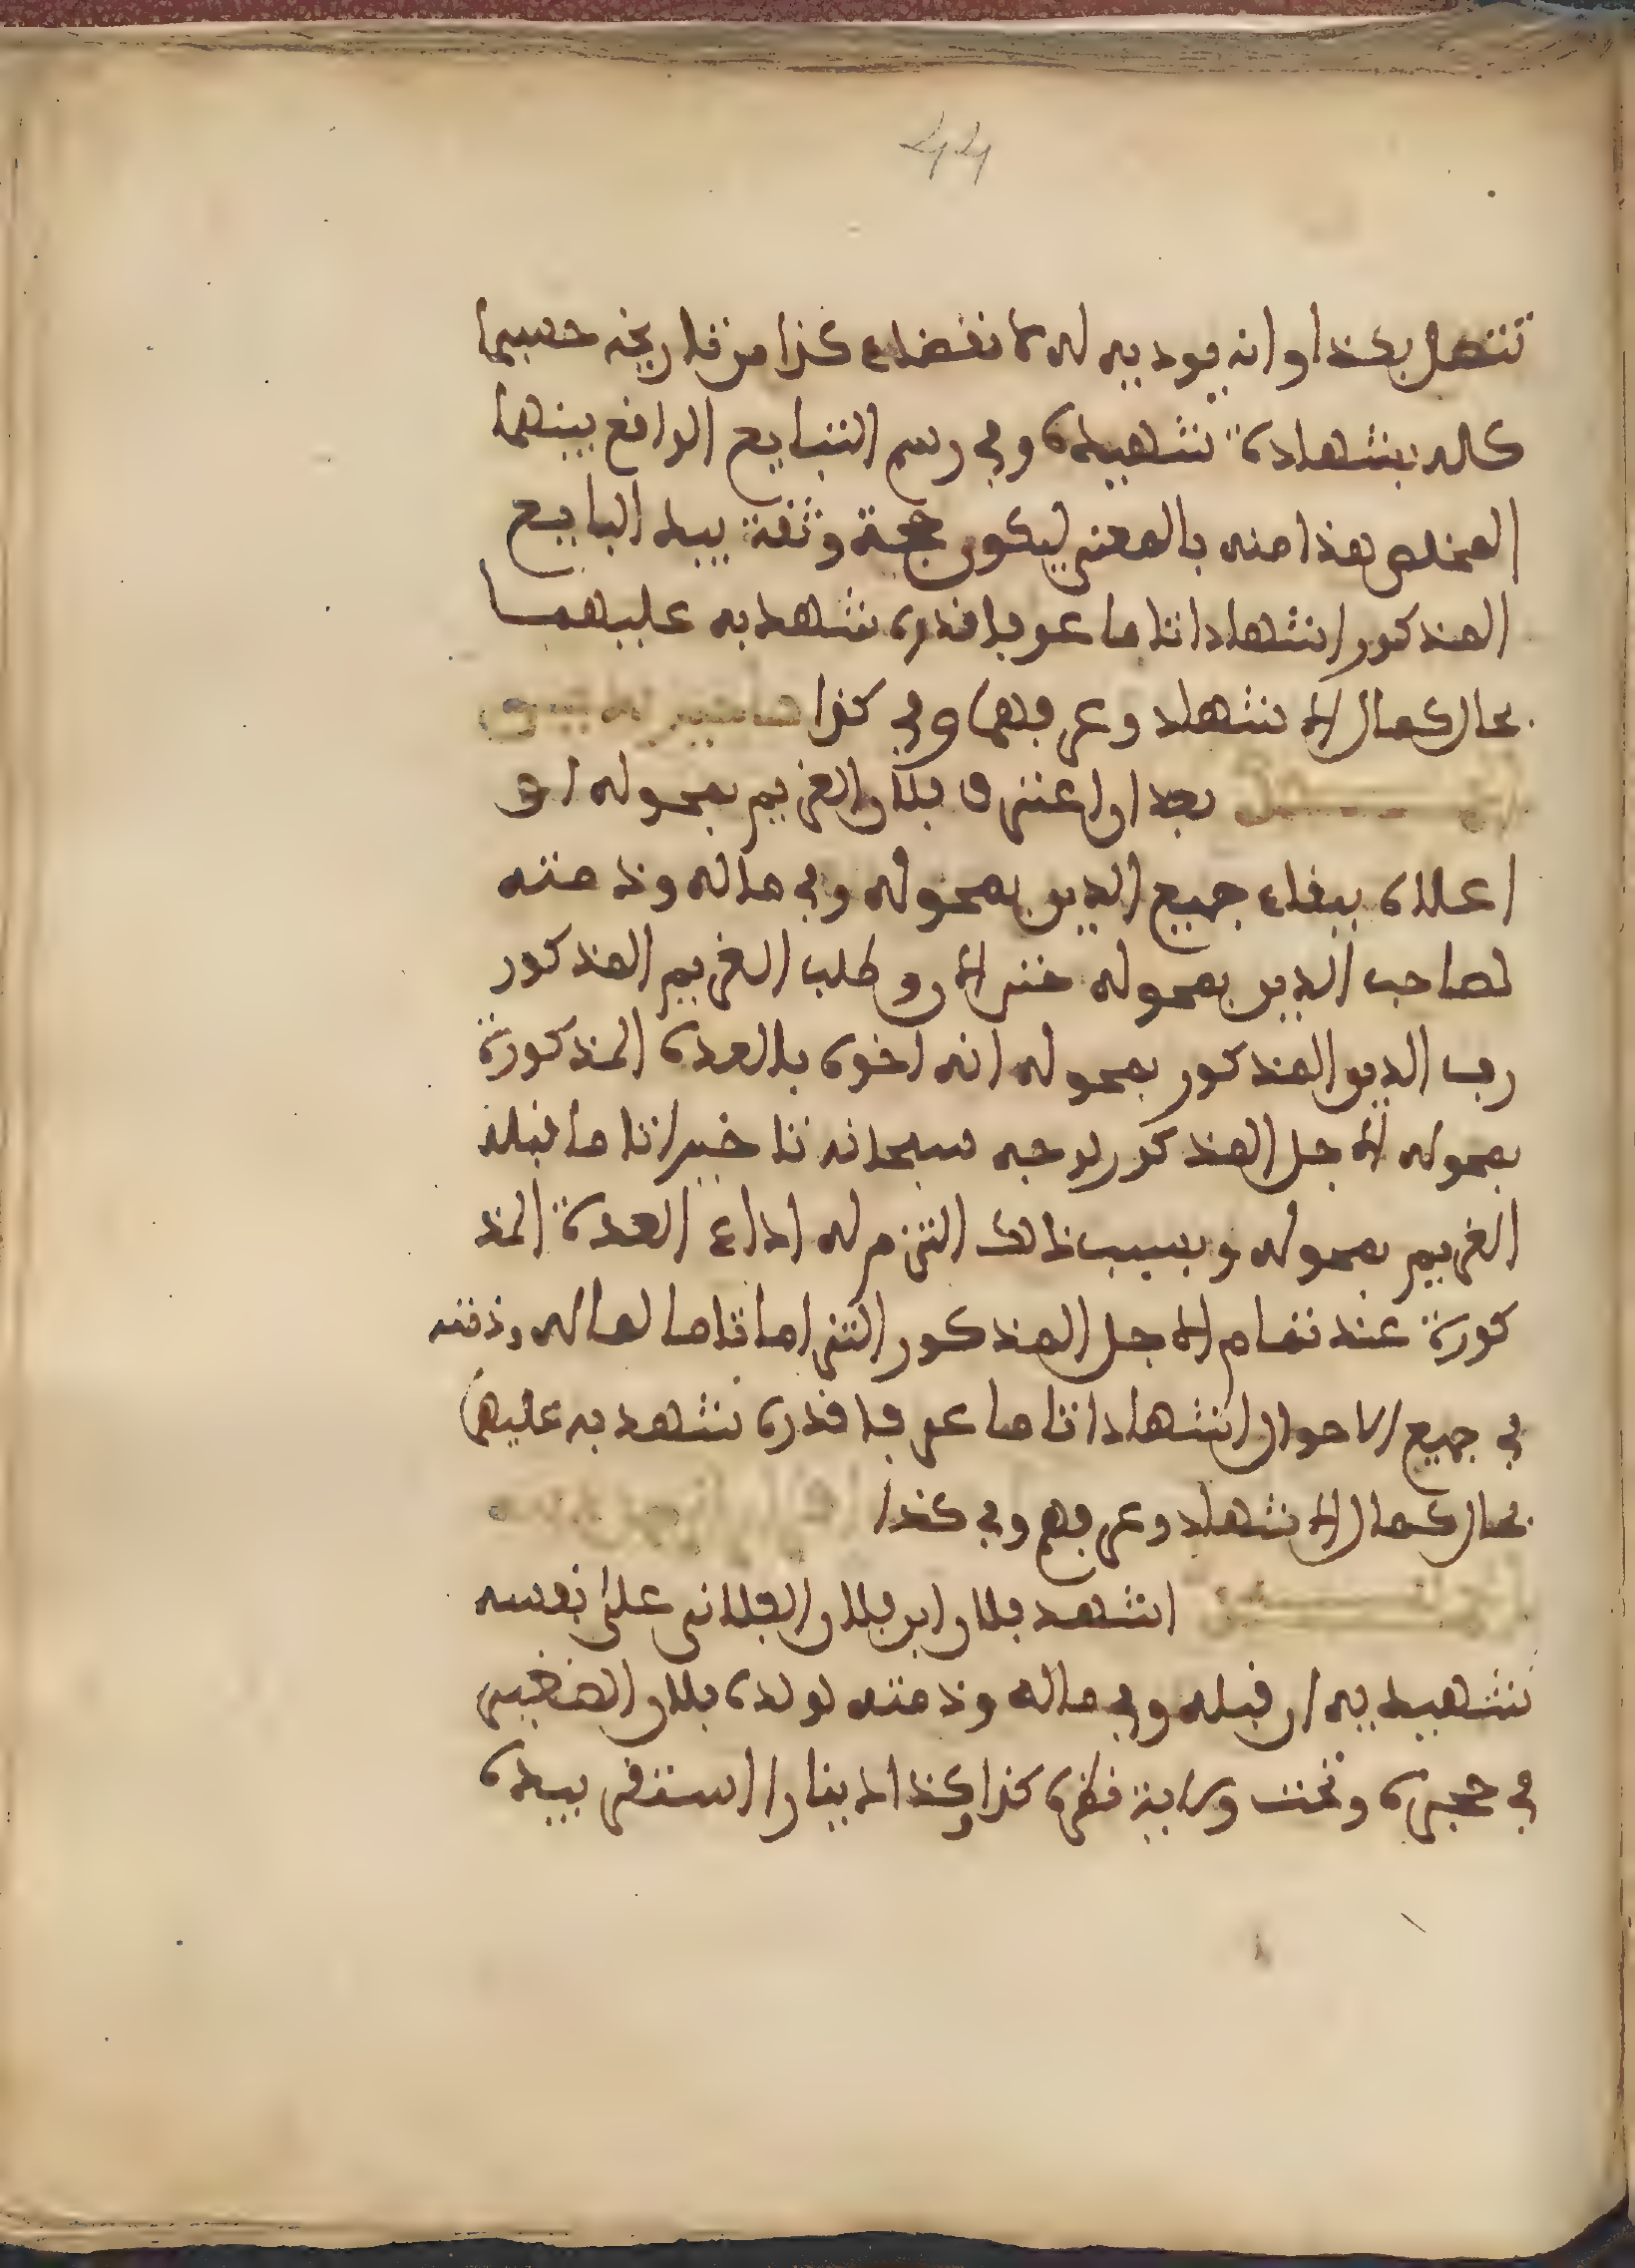 44
تتصل بكذا وانه يوديه له لانقضاء كذا من تاريخه حسبما
كله بشهادة شهيديه وفي رسم التبايع الواقع بينهما
الملخص هذا منه بالمعنى ليكون حجة وثقة بيد البايع
المذكور اشهادا تاما عرفا قدره شهد به عليهما
بحال كمال الاشهاد وعرفهما وفي كذا
بعد ان اعترف فلان الغريم بمحوله او
اعلاه ببقاء جميع الدين بمحوله وفي ماله وذمته
لصاحب الدين بمحوله حتى الان وطلب الغريم المذكور
رب الدين المذكور بمحوله انه اخره بالعدة المذكورة
بمحوله الاجل المذكور لوجه سبحانه تاخيرا تاما قبله
الغريم بمحوله وبسبب ذالك التزم له اداء العدة المذ
كورة عند تمام الاجل المذكور التزاما تاما لماله وذمته
في جميع الاحوال اشهادا تاما عرفا قدره شهد به عليهما
بحال كمال الاشهاد وعرفهم وفي كذا
اشهد فلان ابن فلان الفلاني على نفسه
شهيديه ان قبله وفي ماله وذمته لولده فلان الصغير
في حجره وتحت ولاية نظره كذا وكذا دينارا استقر بيده